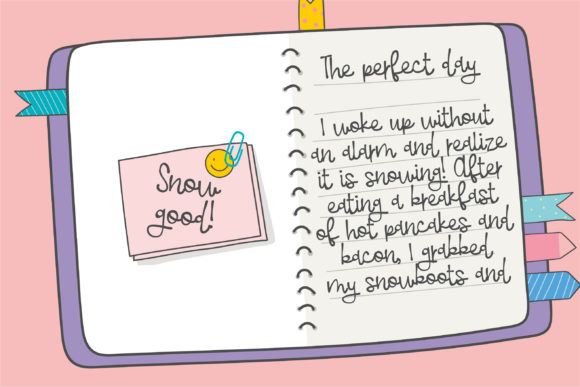 Snow
good!
The perfect day
I woke up without
an alarm and realize
it is snowing! After
eating a breakfast
of hot pancakes and
bacon, I grabbed
my snowboots and